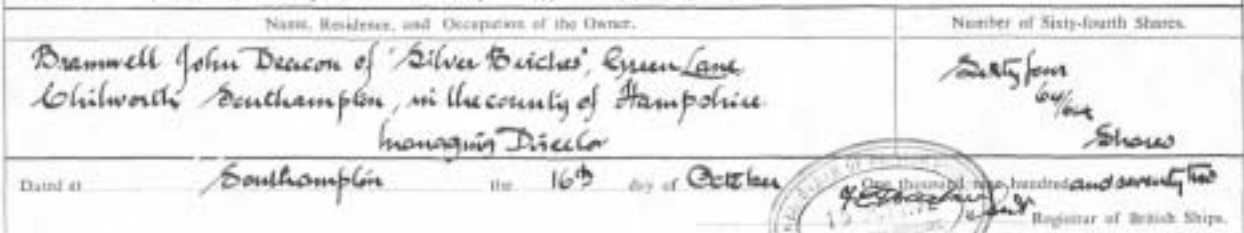 Name, Residence, and Occupation of the Owner. Number of Sixty-fourth Shares.
Bramwell John Deacon of "Silver Birches", Green Lane Sixty four
Chilworth Southampton, in the county of Hampshire 64/64
Managing Director Shares
Dated at Southampton the 16th day of October One thousand nine hundred and seventy two
Registrar of British Ships.